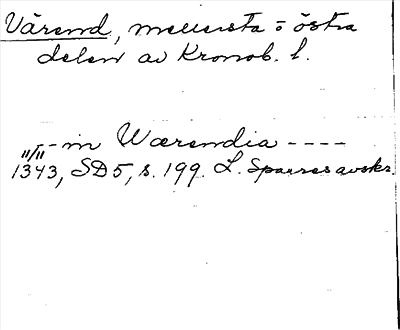 Värend, mellersta o östra
delen av Kronob. l.
--in Wærendia ----
11/11
1343, SD5, s. 199. L. Sparres avskr.